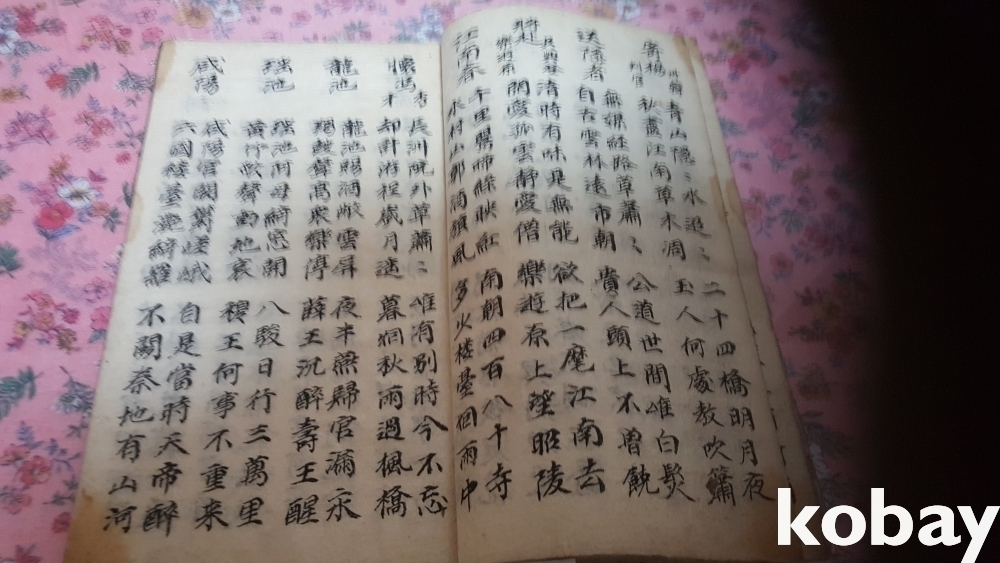 寄楊
州韓
判官
青山隱〻水迢〻 二十四橋明月夜
秋盡江南草木凋 玉人何處教吹簫
送隱者
無媒經路草蕭〻 公道世間唯白髮
自古雲林遠市朝 貴人頭上不曾饒
將赴
吳興登
樂游原
清時有味是無能 欲把一麾江南去
閑愛孤雲靜愛僧 樂遊原上望昭陵
江南春
千里鶯啼綠映紅 南朝四百八十寺
水村山郭酒旗風 多少楼臺烟雨中
懷馮
秀
才
長洲苑外草蕭〻 唯有別時今不忘
却計游程歲月遙 暮烟秋雨過楓橋
龍池
龍池賜酒敞雲屏 夜半燕歸宮漏永
羯鼓聲高衆樂停 薛王沉醉壽王醒
瑤池
瑤池阿母綺窓開 八駿日行三萬里
黃竹歌聲動地哀 穆王何事不重来
咸陽
咸陽宮闕鬱嵯峨 自是當時天帝醉
六國樓臺艶綺羅 不關秦地有山河
kobay